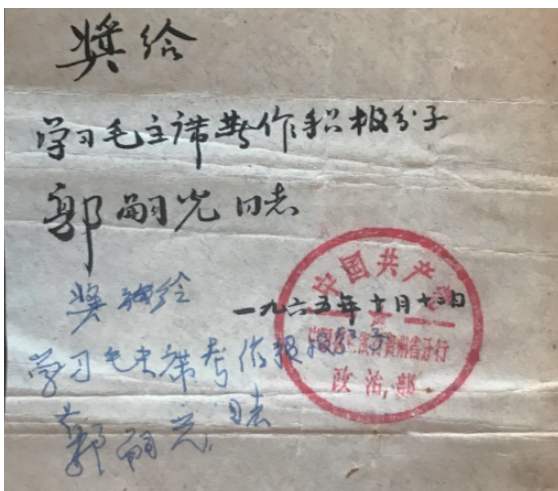 奖给
学习毛主席著作积极分子
郭嗣光同志
一九六五年十月十二日
中国共产党
贵州省分行
政治部
奖给
学习毛主席著作积极分子
郭嗣光同志